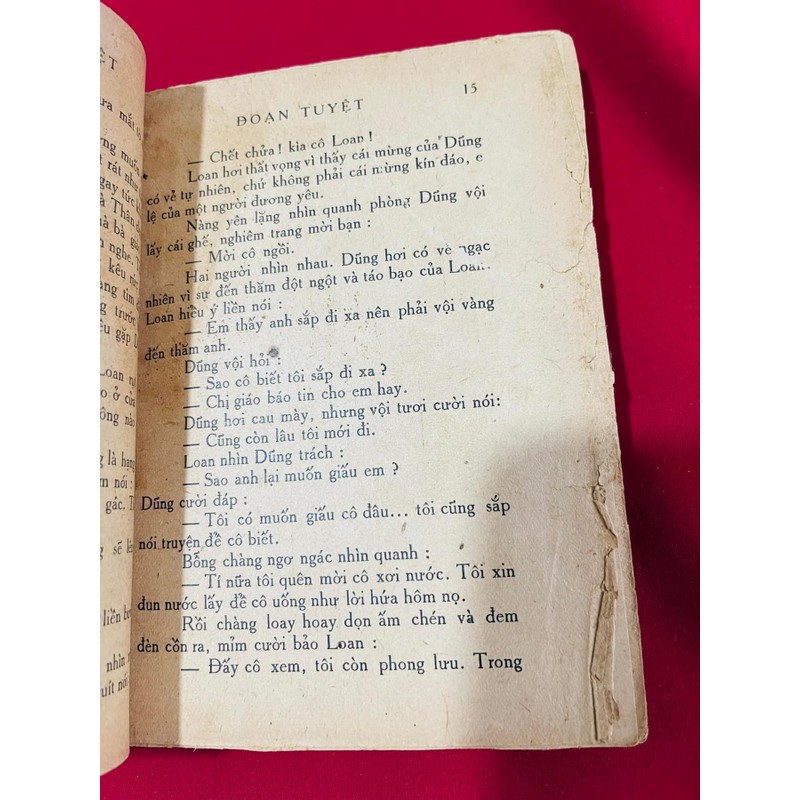 ỆT
ĐOẠN TUYỆT 15
— Chết chửa! kìa cô Loan!
Loan hơi thất vọng vì thấy cái mừng của Dũng
có vẻ tự nhiên, chứ không phải cái mừng kín đáo, e
lệ của một người đương yêu.
Nàng yên lặng nhìn quanh phòng Dũng vội
lấy cái ghế, nghiêm trang mời bạn :
— Mời cô ngồi.
Hai người nhìn nhau. Dũng hơi có vẻ ngạc
nhiên vì sự đến thăm đột ngột và táo bạo của Loan.
Loan hiểu ý liền nói :
— Em thấy anh sắp đi xa nên phải vội vàng
đến thăm anh.
Dũng vội hỏi :
— Sao cô biết tôi sắp đi xa ?
— Chị giáo báo tin cho em hay.
Dũng hơi cau mày, nhưng vội tươi cười nói:
— Cũng còn lâu tôi mới đi.
Loan nhìn Dũng trách :
— Sao anh lại muốn giấu em ?
Dũng cười đáp :
— Tôi có muốn giấu cô đâu... tôi cũng sắp
nói truyện để cô biết.
Bỗng chàng ngơ ngác nhìn quanh :
— Tí nữa tôi quên mời cô xơi nước. Tôi xin
đun nước lấy để cô uống như lời hứa hôm nọ.
Rồi chàng loay hoay dọn ấm chén và đem
đèn cồn ra, mỉm cười bảo Loan :
— Đấy cô xem, tôi còn phong lưu. Trong